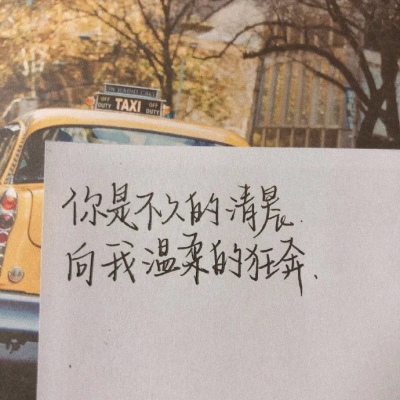 OFF DUTY TAXI OFF DUTY
你是不久的清晨.
向我温柔的狂奔.